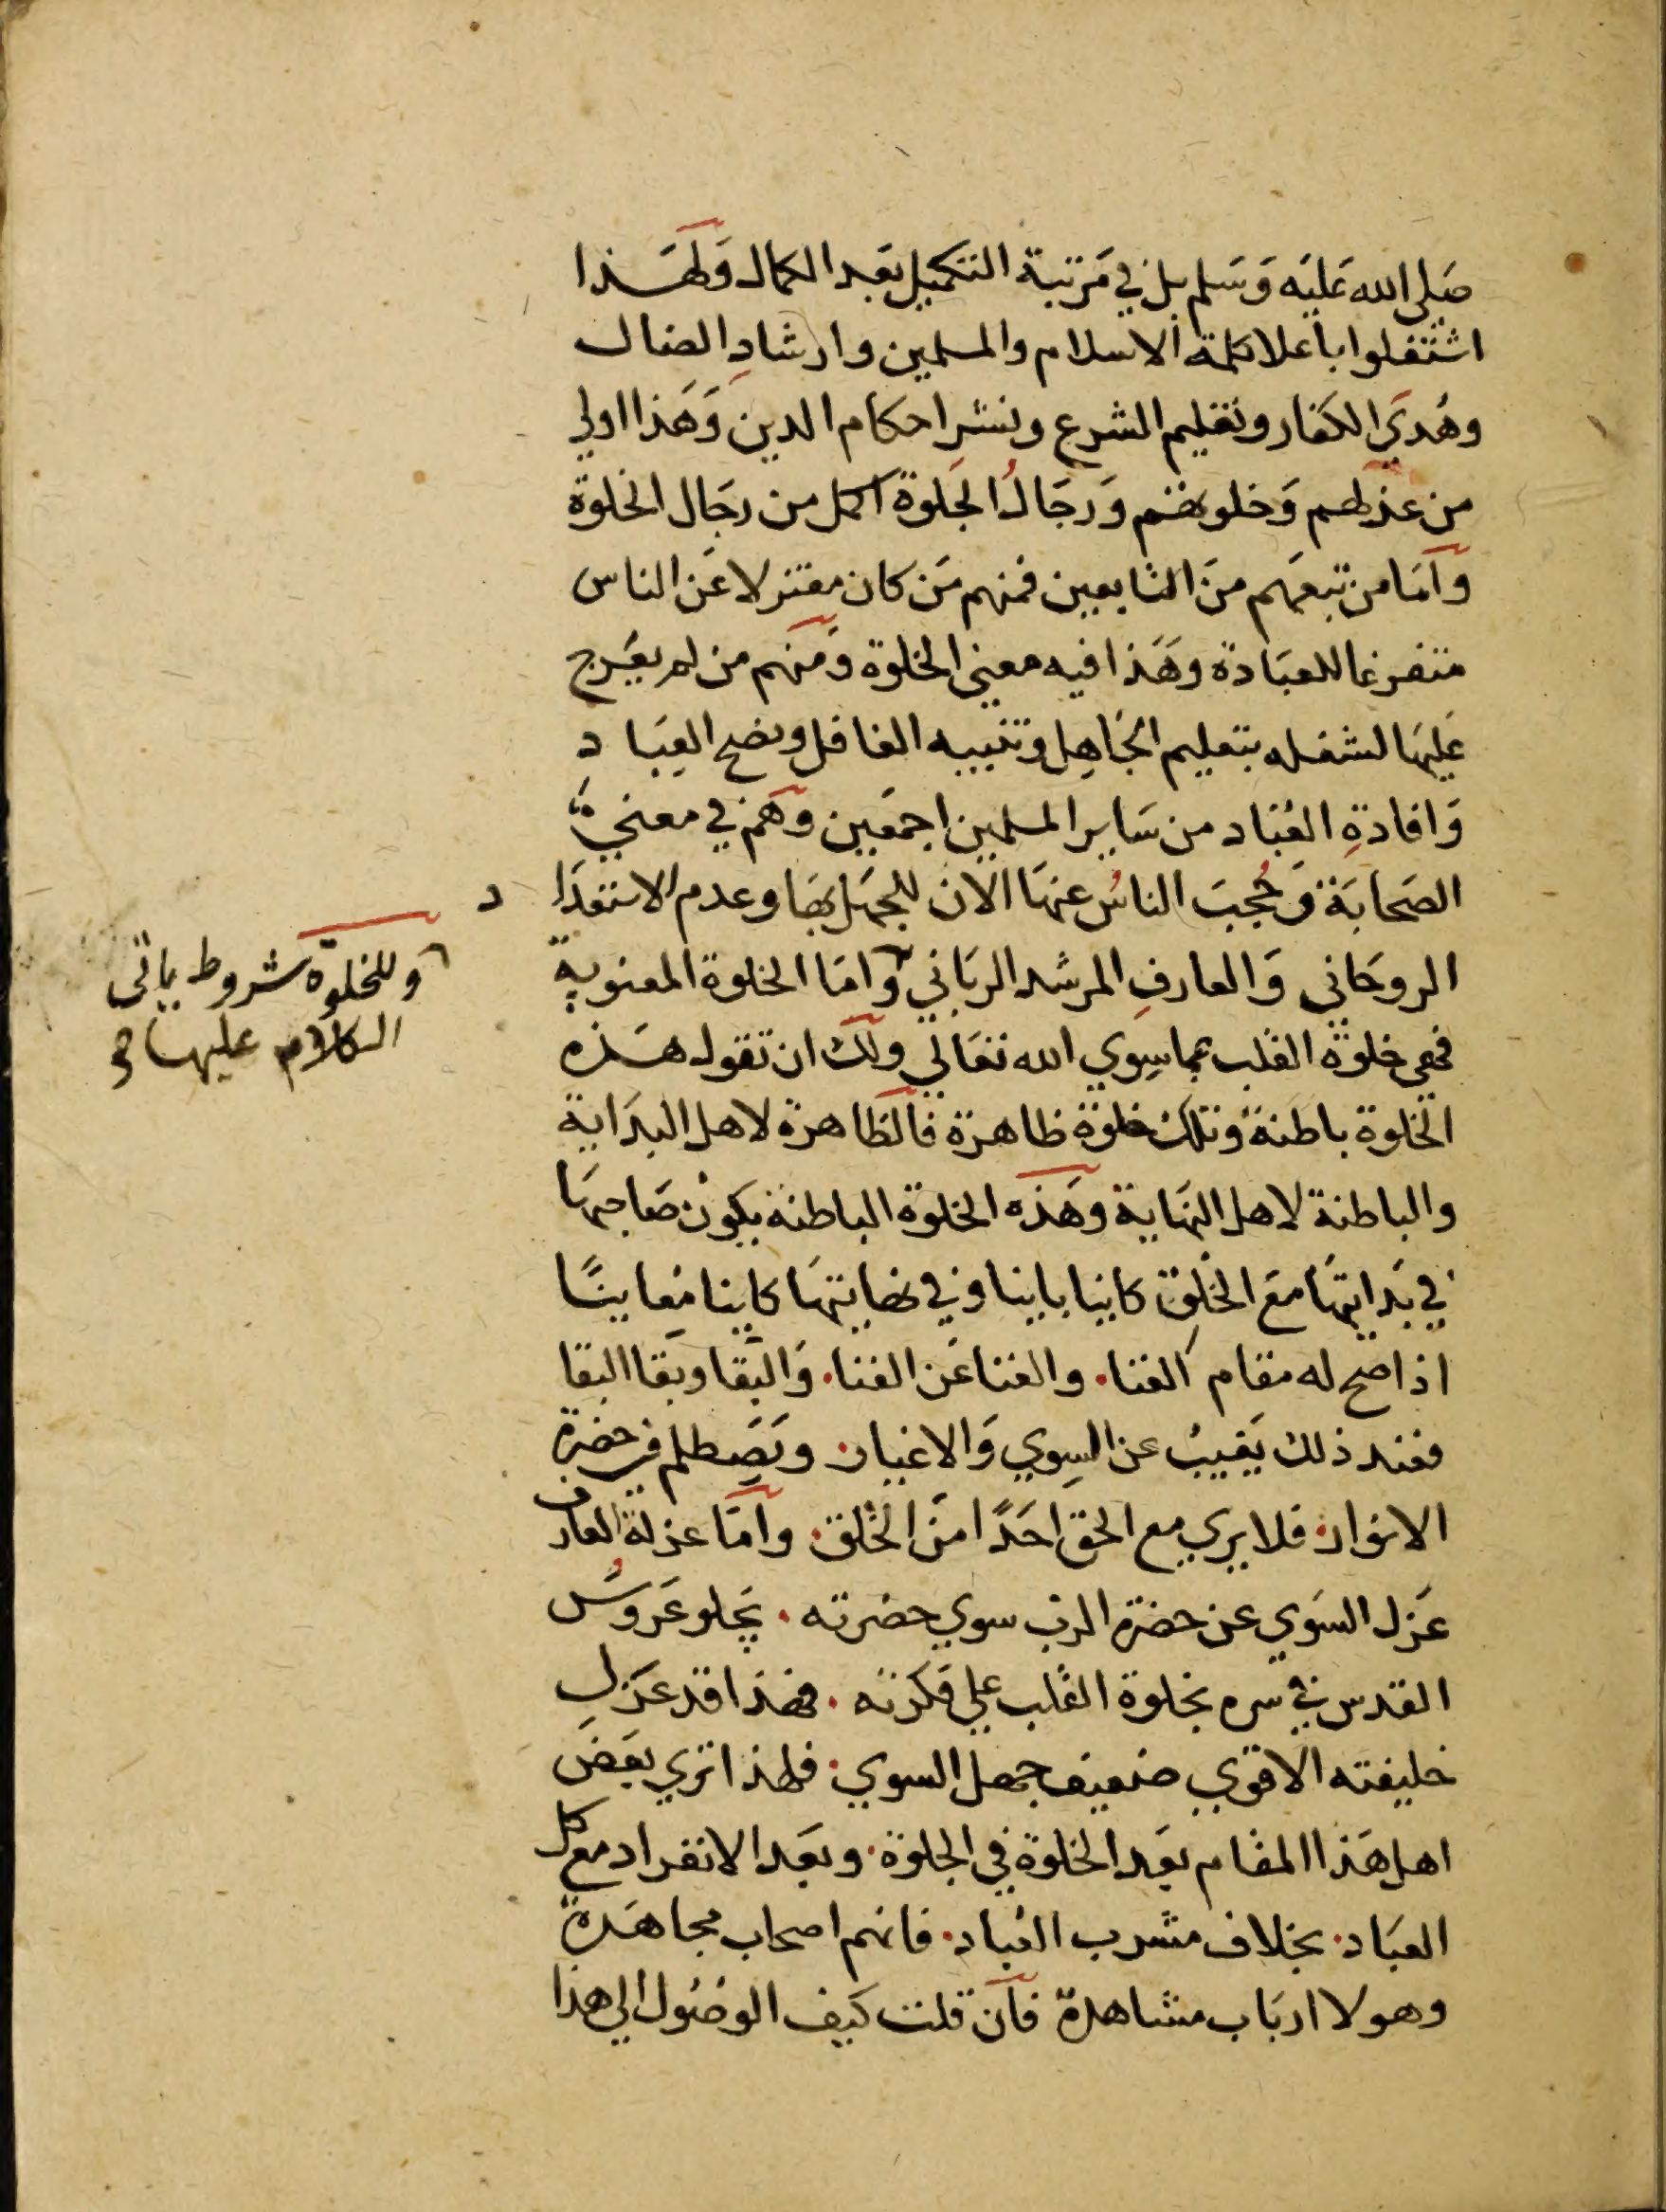 صَلى الله عَليَه وَسَلم بل في مَرتبة التكميل بعَد الكمال وَلهَذا
اشتغلوا باعلا كلمة الاسلام والمسلمين وارشادِ الضال
وهُدَي الكفار وتعَليم الشرع ونشر احكام الدين وَهَذا اولي
من عزلتهم وَخلوتهم وَرجَالُ الجَلوة اكمل من رجَال الخلوة
وامَا من تبعَهم منَ التابعين فمنهم مَن كان معتزلا عَن الناس
متفرغا للعبَادة وهَذا فيه معني الخلوة وَمنهم من لم يعَرج
عَليهَا لشغله بتعليم الجَاهِل وتنبيه الغافل ونصح العِبَاد
وَافادةِ العُباد من سَاير المسلمين اجمعَين وهَم في معني
الصَحابَة وَحُجبَ الناسُ عنهَا الان للجهَل بهَا وعدم الاستعدَاد
الروحَاني وَالعارفِ المرشد الربَاني وَامَا الخلوة المعنوية
فهي خلوة القلب عما سِوي الله تعَالي ولك ان تقول هَذه
الخلوة باطنة وتلك خلوة ظاهرة فالظاهرة لاهل البدَاية
والباطنة لاهل النهَاية وهَذه الخلوة الباطنة يكون صَاحبهَا
في بَدايتهَا مَع الخلق كاينا باينا وفي نهايتهَا كاينا مُعاينًا
اذا صح له مقام الفنا. والفنا عَن الفنا. وَالبَقا وبَقا البقا
فعند ذلك يَغيبُ عن السِوي وَالاغيار. ويَصَطلم في حضرة
الانوار. فلا يري مع الحق احَدًا منَ الخلق. وامَا عزلة العارف
عَزل السَوي عن حضرة الرب سوي حضرته. يجَلو عَروسُ
القدس في سره بخلوة القلب علي فكرته. فهذا قد عَزل
خليفته الاقوي ضعيف جهل السوي. فلهذا تري بعَض
اهل هَذا المقام بعَد الخلوة في الجلوة. وبعَد الانفراد مع كل
العبَاد. بخلاف مشرب العُباد. فانهم اصحاب مجاهَدة
وهولا اربَاب مشاهدة فان قلت كيف الوصُول الي هذا
وللخلوة شروط ياتى
الكلام عليها